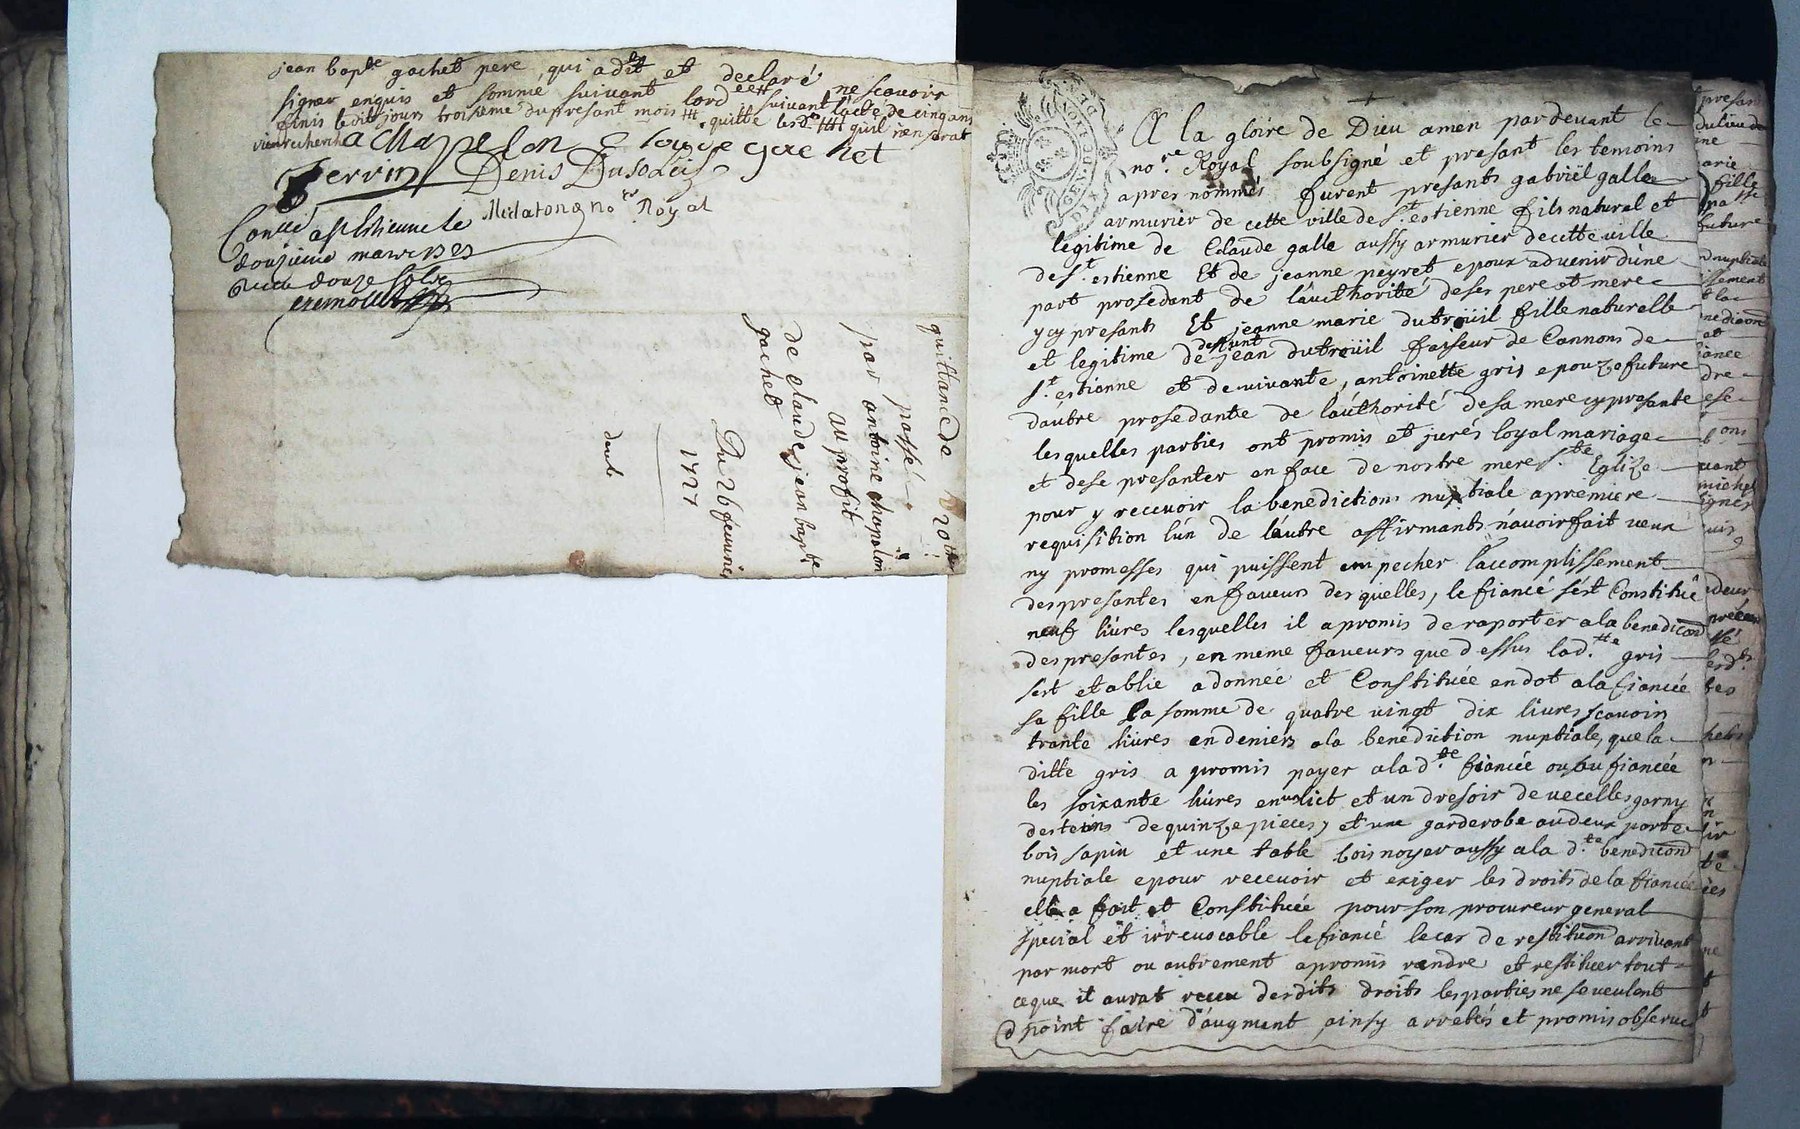 jean bapte gachet pere, qui a dit et declaré ne scavoir
signer enquis et sommé suivant lord
finis ledit jours troiseme du present mois suivant l'acte de cinq ans
quitte lesd. qu'il n'en serat
rien recherché
a Chapelon
Perrin Denis Dusoleis
Melaton no.re Royal
Conllé a st etienne le
douzieme mars 1727
Receu douze sols
quittance de 20
passé
par antoine chapelon
au profit
de claude jean bapte
gachet
Du 26 feuvrier
1727
A la gloire de Dieu amen pardevant le
no.re Royal soubsigné et presant les temoins
apres nommés furent presants gabriël galle
armurier de cette ville de st estienne fils naturel et
legitime de Claude galle aussy armurier de cette ville
de st. estienne Et de jeanne peyret epoux advenir d'une
part prosedant de l'authorité de ses pere et mere
ycy presants Et jeanne marie dutreüil fille naturelle
et legitime de deffunt jean dutreüil faiseur de Cannons de
st. estienne et de vivante, antoinette gris epouze future
d'autre prosedante de l'authorité de sa mere cy presante
lesquelles parties ont promis et jurés loyal mariage
et de se presanter en face de nostre mere s.te Eglize
pour y recevoir la benediction nuptiale a premiere
requisition l'un de l'autre affirmants n'avoir fait veux
ny promesses qui puissent empecher l'accomplissement
des presantes en faveurs des quelles, le fiancé s'est Constitué
neuf livres lesquelles il a promis de raporter a la benedicon
des presantes, en meme faveurs que dessus lad.tte gris
s'est etablie a donnée et Constituée en dot a la fiancée
sa fille la somme de quatre vingt dix livres scavoir
trante livres en deniers a la benediction nuptiale, que la
ditte gris a promis payer a la d.te fiancée ou au fiancée
les soixante livres en un lict et un dresoir de vecelles garny
desteins de quinze pieces, et une garderobe au deux porte
bois sapin et une table bois noyer aussy a la d.te benedicon
nuptiale epour recevoir et exiger les droits de la fiancée
elle a fait et Constituée pour son procureur general
special et irrevocable le fiancé le cas de restituon arrivant
par mort ou autrement a promis randre et restituer tout
ce que il aurat receu desdits droits les parties ne se veulent
point faire d'augment ainsy arretés et promis observer